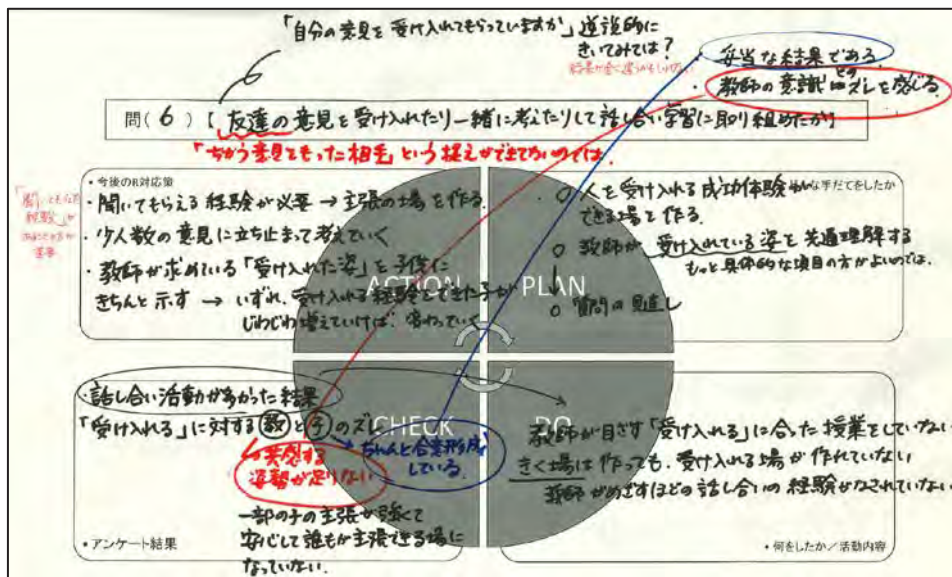 「自分の意見を受け入れてもらっていますか」逆説的に
きいてみては?
結果が全く違うかもしれない
6
妥当な結果である。
・教師の意識とのズレを感じる。
問(6)【友達の意見を受け入れたり一緒に考えたりして話し合い学習に取り組めたか】
「ちがう意見をもった相手」という捉えができてないのでは。
・今後のR対応策
・聞いてもらえる経験が必要 → 主張の場を作る。
「聞いてもらった
経験」が
・少人数の意見に立ち止まって考えていく
・教師が求めている「受け入れた姿」を子供に
きちんと示す → いずれ、受け入れる経験をできた子が
じわじわ増えていけば、変わっていく
ACTION
な手だてをしたか
○ 人を受け入れる成功体験が
できる場を作る。
○ 教師が、受け入れている姿を共通理解する
もっと具体的な項目の方がよいのでは。
○ 質問の見直し
PLAN
・話し合い活動が多かった結果
「受け入れる」に対する教と子のズレ
CHECK
共感する
姿勢が足りない
ちゃんと合意形成
している。
一部の子の主張が強くて
安心して誰もが主張できる場に
なっていない.
・アンケート結果
DO
教師が目ざす「受け入れる」に合った授業をしていない
きく場は作っても、受け入れる場が作れていない
教師がめざすほどの話し合いの経験がなされていない
・何をしたか/活動内容